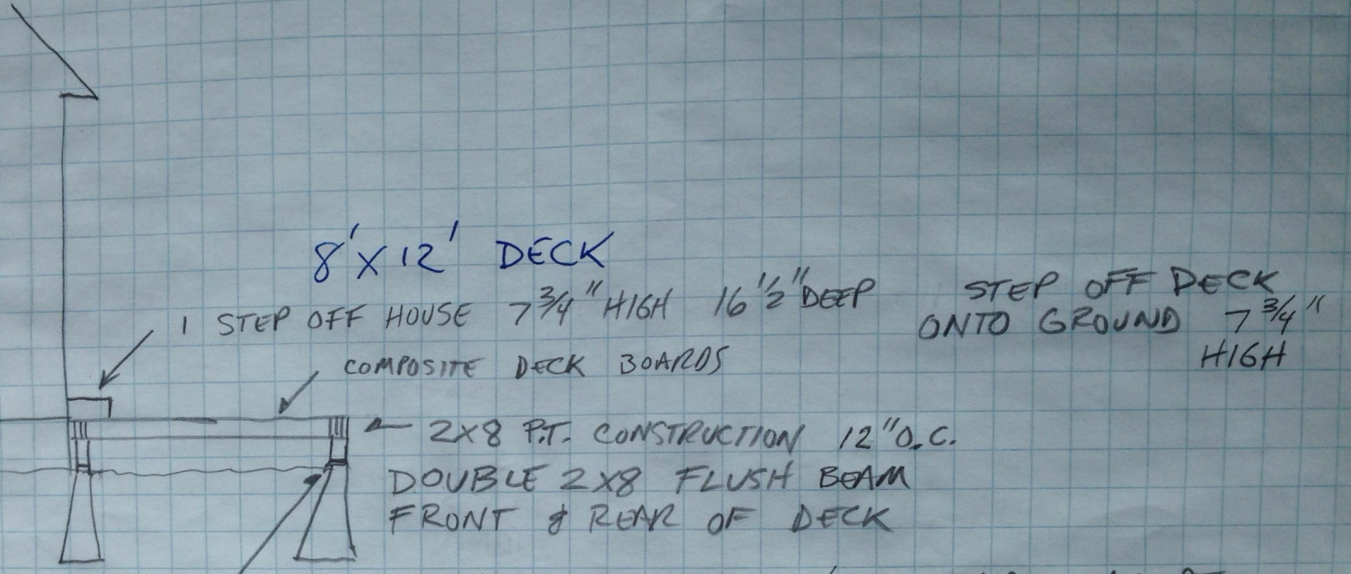 8' X 12' DECK
1 STEP OFF HOUSE 7 3/4" HIGH 16 1/2" DEEP
STEP OFF DECK
ONTO GROUND 7 3/4"
HIGH
COMPOSITE DECK BOARDS
2X8 P.T. CONSTRUCTION 12" O.C.
DOUBLE 2X8 FLUSH BEAM
FRONT & REAR OF DECK